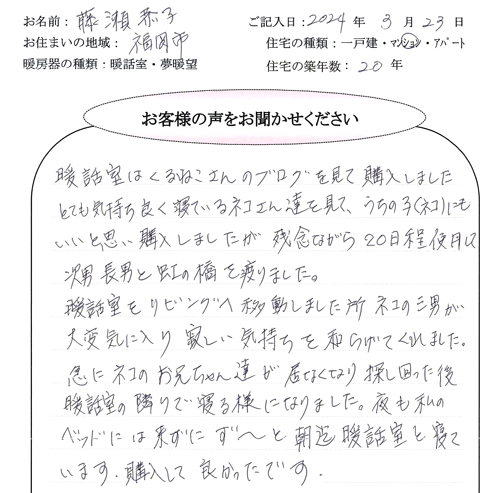 お名前： 藤瀬恭子 ご記入日：2024年 3月 23日
お住まいの地域： 福岡市 住宅の種類：一戸建・マンション・アパート
暖房器の種類：暖話室・夢暖望 住宅の築年数： 20年
お客様の声をお聞かせください
暖話室はくるねこさんのブログを見て購入しました
とても気持ち良く寝ているネコさん達を見て、うちの子(ネコ)にも
いいと思い購入しましたが 残念ながら20日程使用し
次男長男と虹の橋を渡りました。
暖話室をリビングへ移動しました所 ネコの三男が
大変気に入り 寂しい気持ちを和らげてくれました。
急にネコのお兄ちゃん達が居なくなり探し回った後
暖話室の隣りで寝る様になりました。夜も私の
ベッドには来ずに ず〜と朝迄暖話室と寝て
います。購入して良かったです.